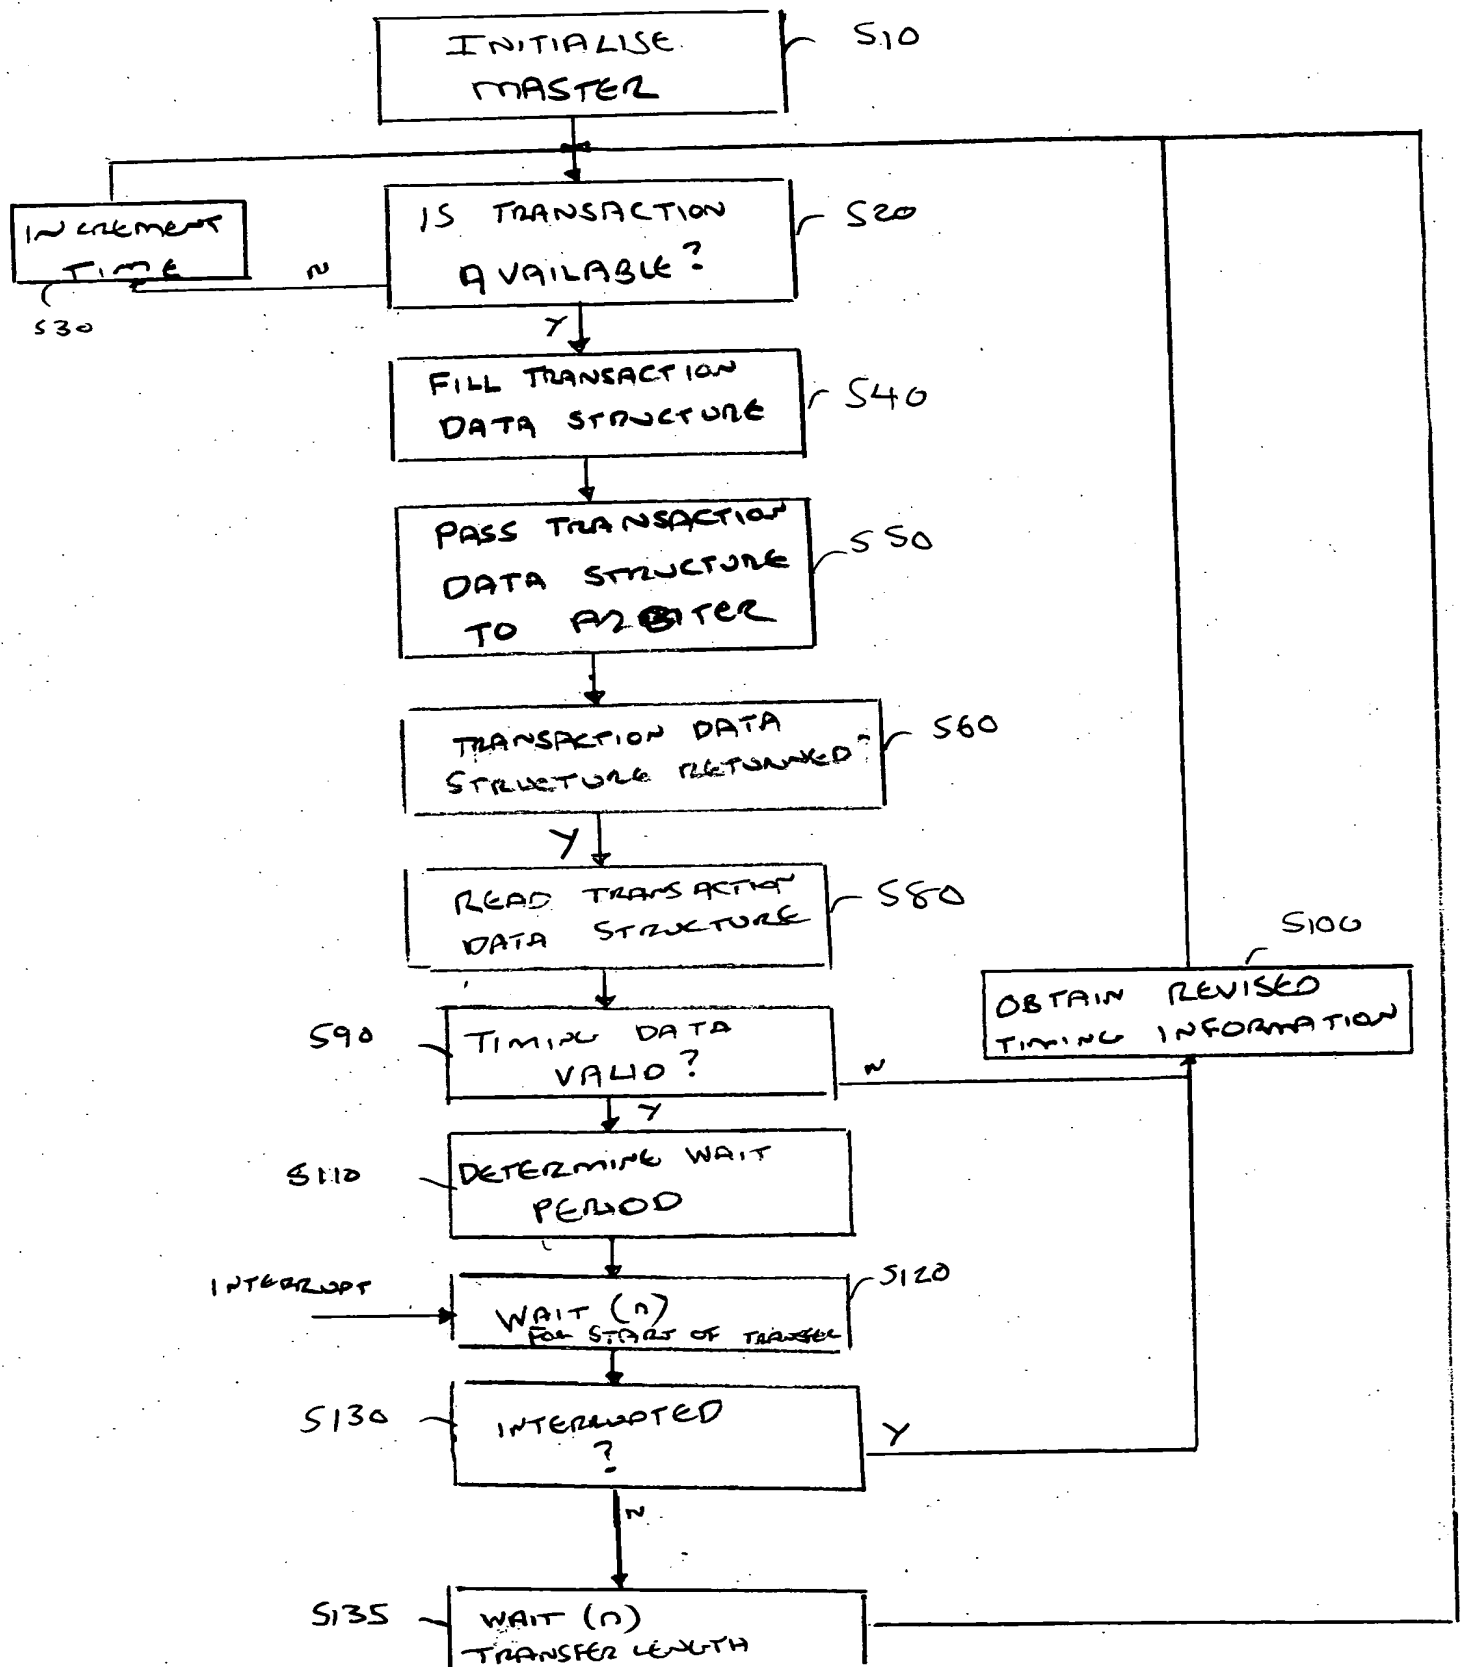 INITIALISE
MASTER
S10
IS TRANSACTION
AVAILABLE?
S20
INCREMENT
TIME
N
S30
Y
FILL TRANSACTION
DATA STRUCTURE
S40
PASS TRANSACTION
DATA STRUCTURE
TO ARBITER
S50
TRANSACTION DATA
STRUCTURE RETURNED
S60
Y
READ TRANSACTION
DATA STRUCTURE
S80
S100
OBTAIN REVISED
TIMING INFORMATION
S90
TIMING DATA
VALID?
N
Y
S110
DETERMINE WAIT
PERIOD
INTERRUPT
S120
WAIT (n)
FOR START OF TRANSFER
S130
INTERRUPTED
?
Y
N
S135
WAIT (n)
TRANSFER LENGTH